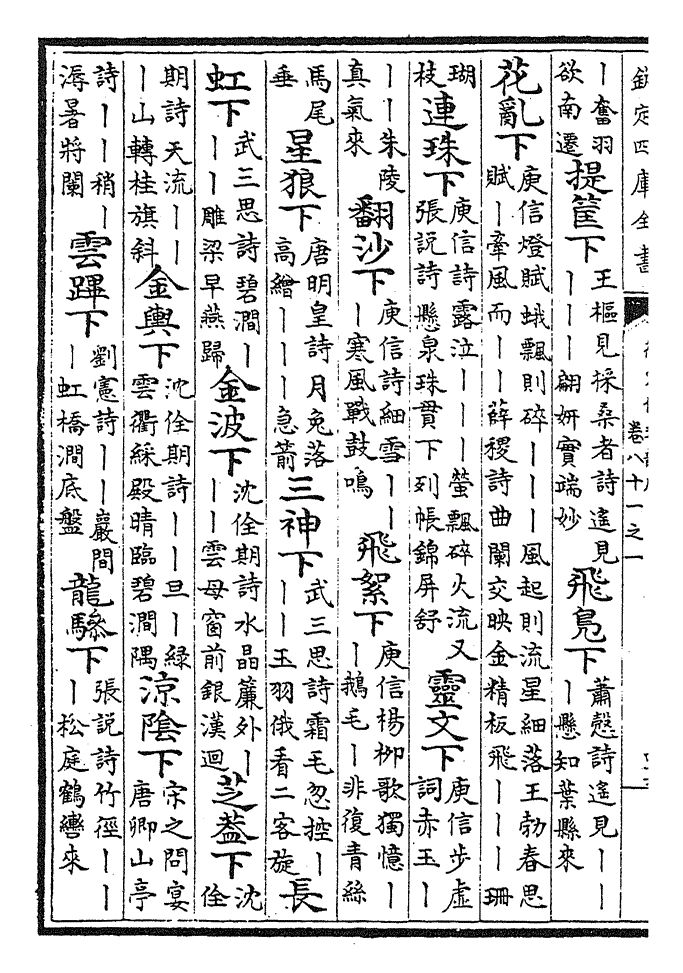 欽定四庫全書
卷八十一之一
丨奮羽欲南遷提筐下王樞見採桑者詩遙見丨丨丨翩妍實端妙飛鳧下蕭慤詩遙見丨丨丨懸知葉縣來
花亂下庾信燈賦蛾飄則碎丨丨丨風起則流星細落王勃春思賦丨牽風而丨丨薛稷詩曲闌交映金精板飛丨丨丨珊
瑚枝連珠下庾信詩露泣丨丨丨螢飄碎火流又張説詩懸泉珠貫下列帳錦屏舒靈文下庾信步虛詞赤玉丨
丨丨朱陵真氣來翻沙下庾信詩細雪丨丨丨寒風戰鼓鳴飛絮下庾信楊柳歌獨憶丨丨鵝毛丨非復青絲
馬尾垂星狼下唐明皇詩月兔落高繒丨丨丨急箭三神下武三思詩霜毛忽控丨丨丨玉羽俄看二客旋長
虹下武三思詩碧澗丨丨丨雕梁早燕歸金波下沈佺期詩水晶簾外丨丨丨雲母窗前銀漢迴芝蓋下沈佺
期詩天流丨丨丨山轉桂旗斜金輿下沈佺期詩丨丨旦丨綠雲衢綵殿晴臨碧澗隅涼陰下宋之問宴唐卿山亭
詩丨丨稍丨溽暑將闌雲蹕下劉憲詩丨丨巖間丨虹橋澗底盤龍驂下張説詩竹徑丨丨丨松庭鶴轡來